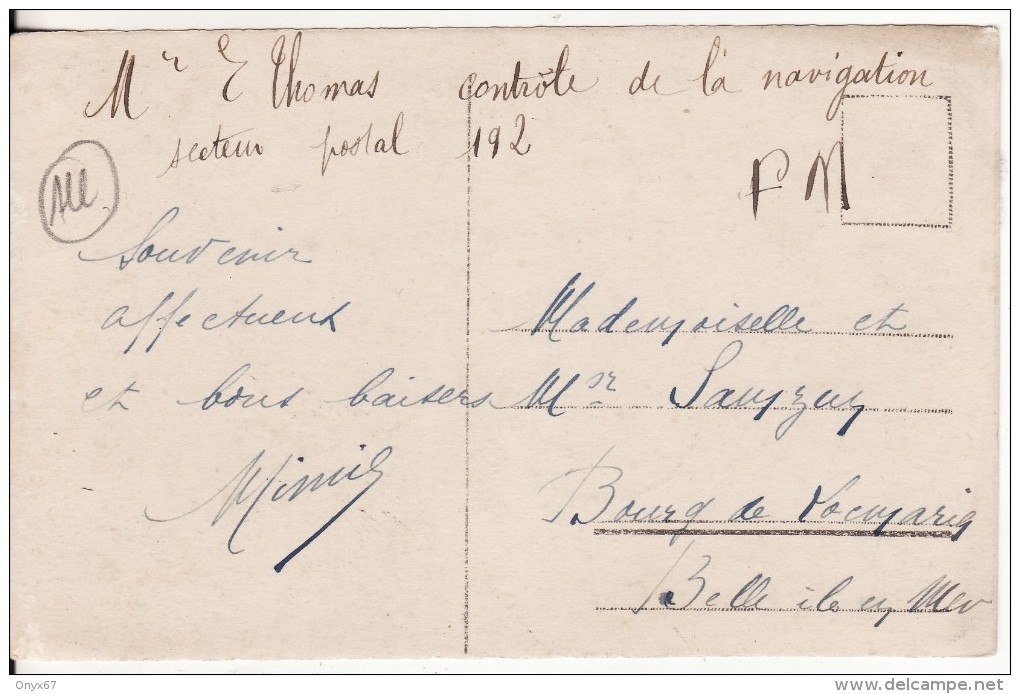 Mr E Thomas contrôle de la navigation
secteur postal 192
F M
Souvenir
affectueux
et bons baisers
Mimi
Mademoiselle et
Mr
Bourg de Locmaria
Belle ile en Mer
Onyx67
delcampe.net